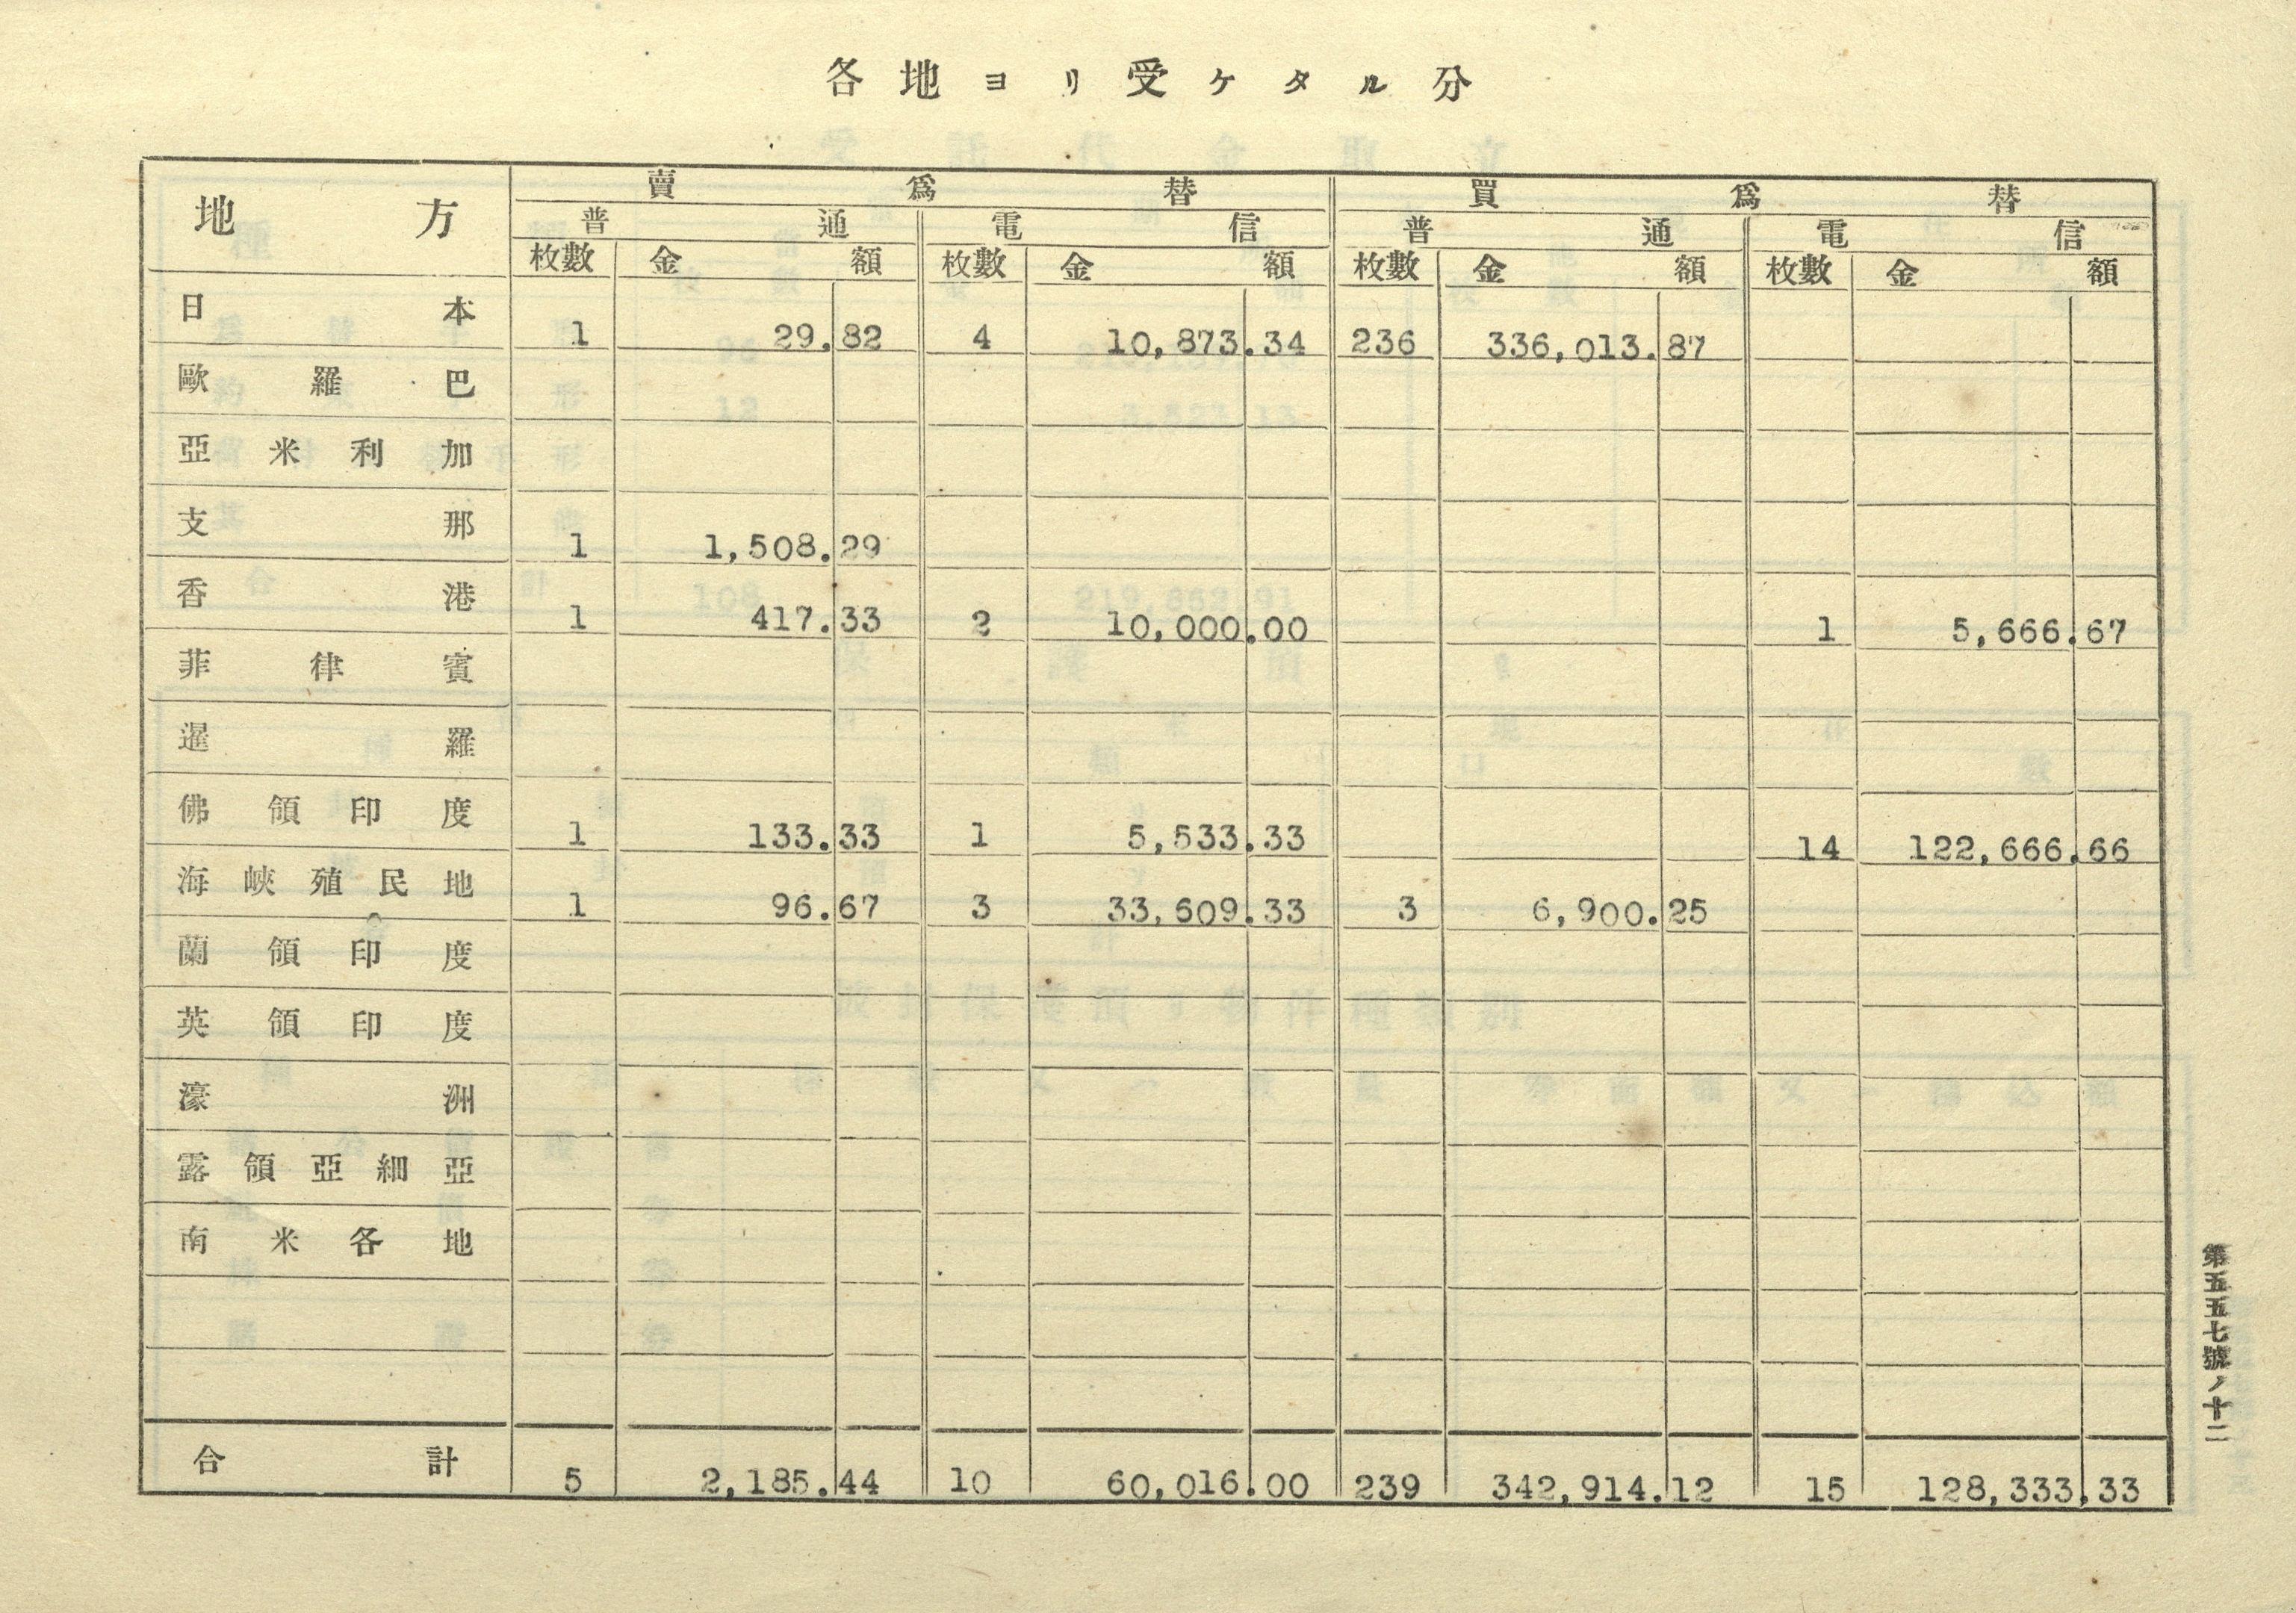 各地ヨリ受ケタル分
地方 賣爲替 買爲替
普通 電信 普通 電信
枚數 金額 枚數 金額 枚數 金額 枚數 金額
日本 1 29.82 4 10,873.34 236 336,013.87
歐羅巴
亞米利加
支那 1 1,508.29
香港 1 417.33 2 10,000.00 1 5,666.67
菲律賓
暹羅
佛領印度 1 133.33 1 5,533.33 14 122,666.66
海峽殖民地 1 96.67 3 33,609.33 3 6,900.25
蘭領印度
英領印度
濠洲
露領亞細亞
南米各地
合計 5 2,185.44 10 60,016.00 239 342,914.12 15 128,333.33
第五五七號ノ十二